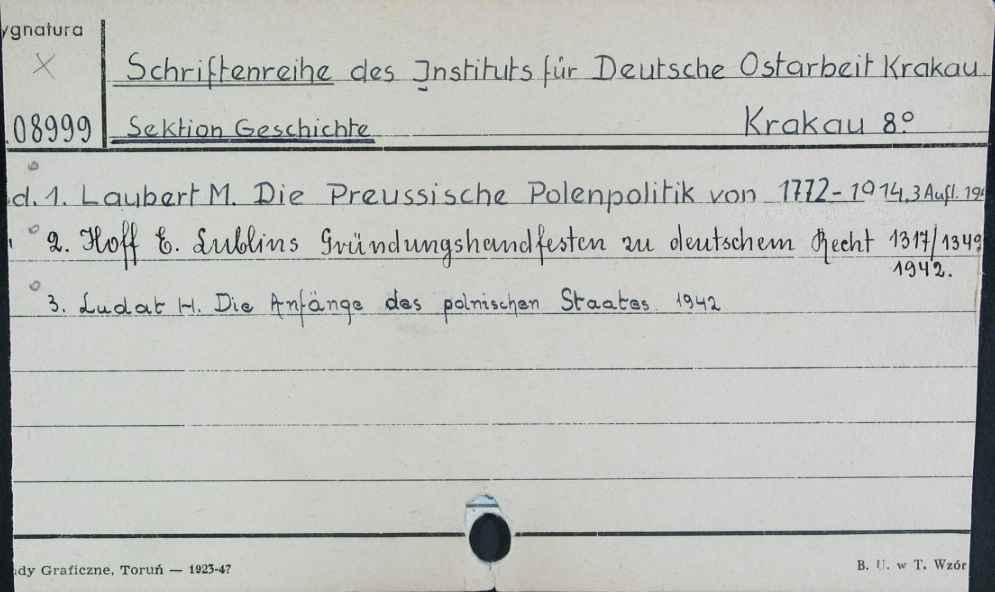 ygnatura
X
Schriftenreihe des Instituts für Deutsche Ostarbeit Krakau.
08999 Sektion Geschichte Krakau 8°
d. 1. Laubert M. Die Preussische Polenpolitik von 1772-1914. 3 Aufl. 19
2. Hoff E. Lublins Gründungshandfesten zu deutschem Recht 1317/1349
1942.
3. Ludat H. Die Anfänge des polnischen Staates 1942
dy Graficzne, Toruń — 1923-47 B. U. w T. Wzór